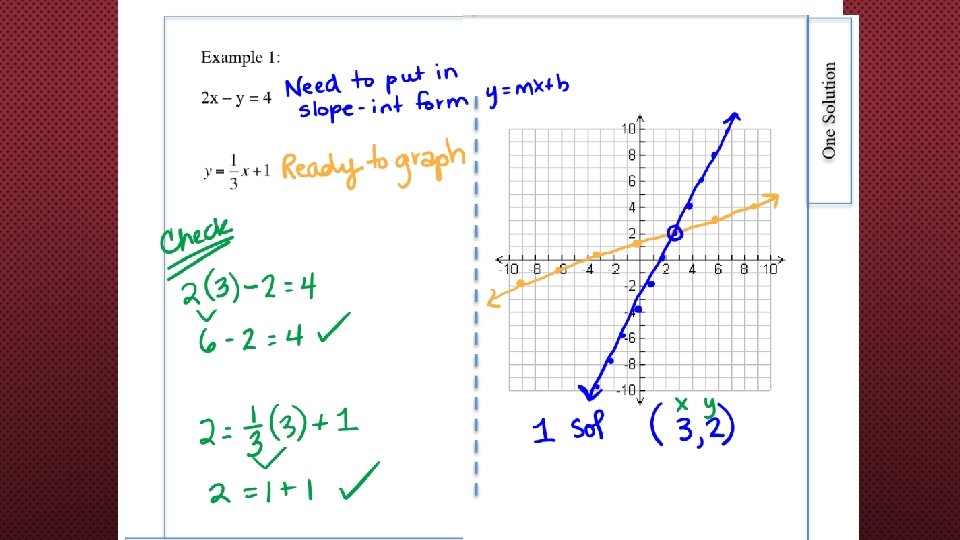 Example 1:
2x – y = 4
Need to put in
slope-int form y=mx+b
y = 1/3 x + 1
Ready to graph
Check
2(3)-2=4
6-2=4 ✓
2=1/3(3)+1
2=1+1 ✓
One Solution
10
8
6
4
2
-10 -8 -6 -4 -2 2 4 6 8 10
-2
-4
-6
-8
-10
x y
1 sol (3,2)